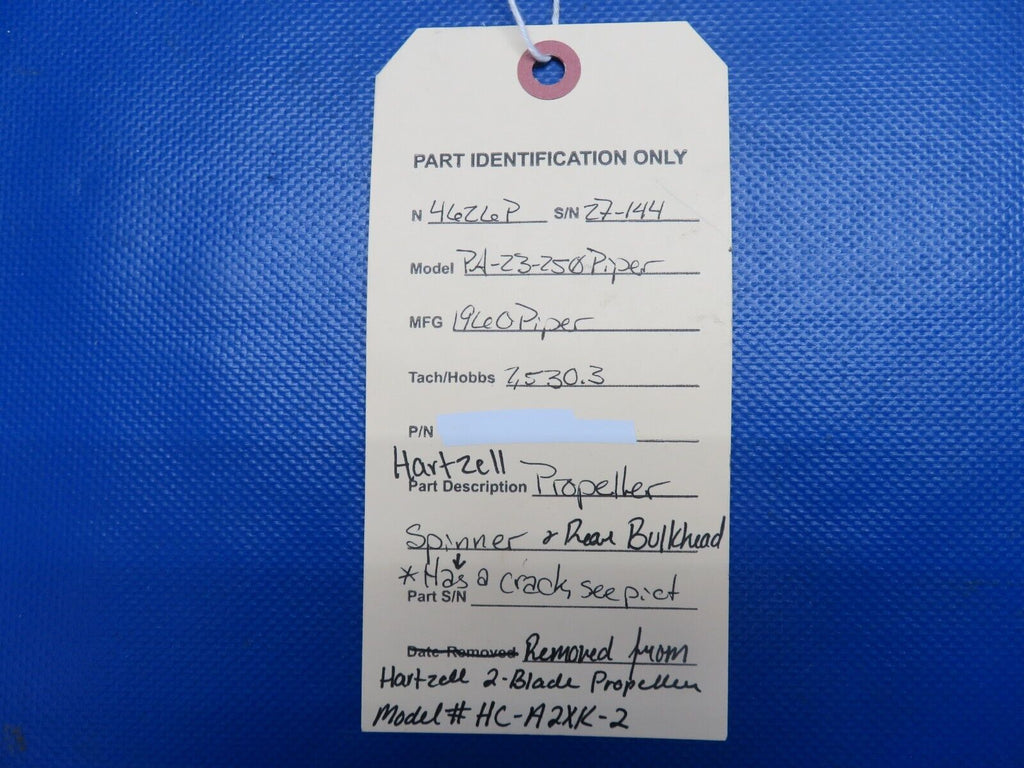 PART IDENTIFICATION ONLY
N 4626P S/N 27-144
Model PA-23-250 Piper
MFG 1960 Piper
Tach/Hobbs 7,530.3
P/N
Hartzell
Part Description Propeller
Spinner & Rear Bulkhead
* Has a crack, see pict
Part S/N
Date Removed Removed from
Hartzell 2-Blade Propeller
Model # HC-A2XK-2